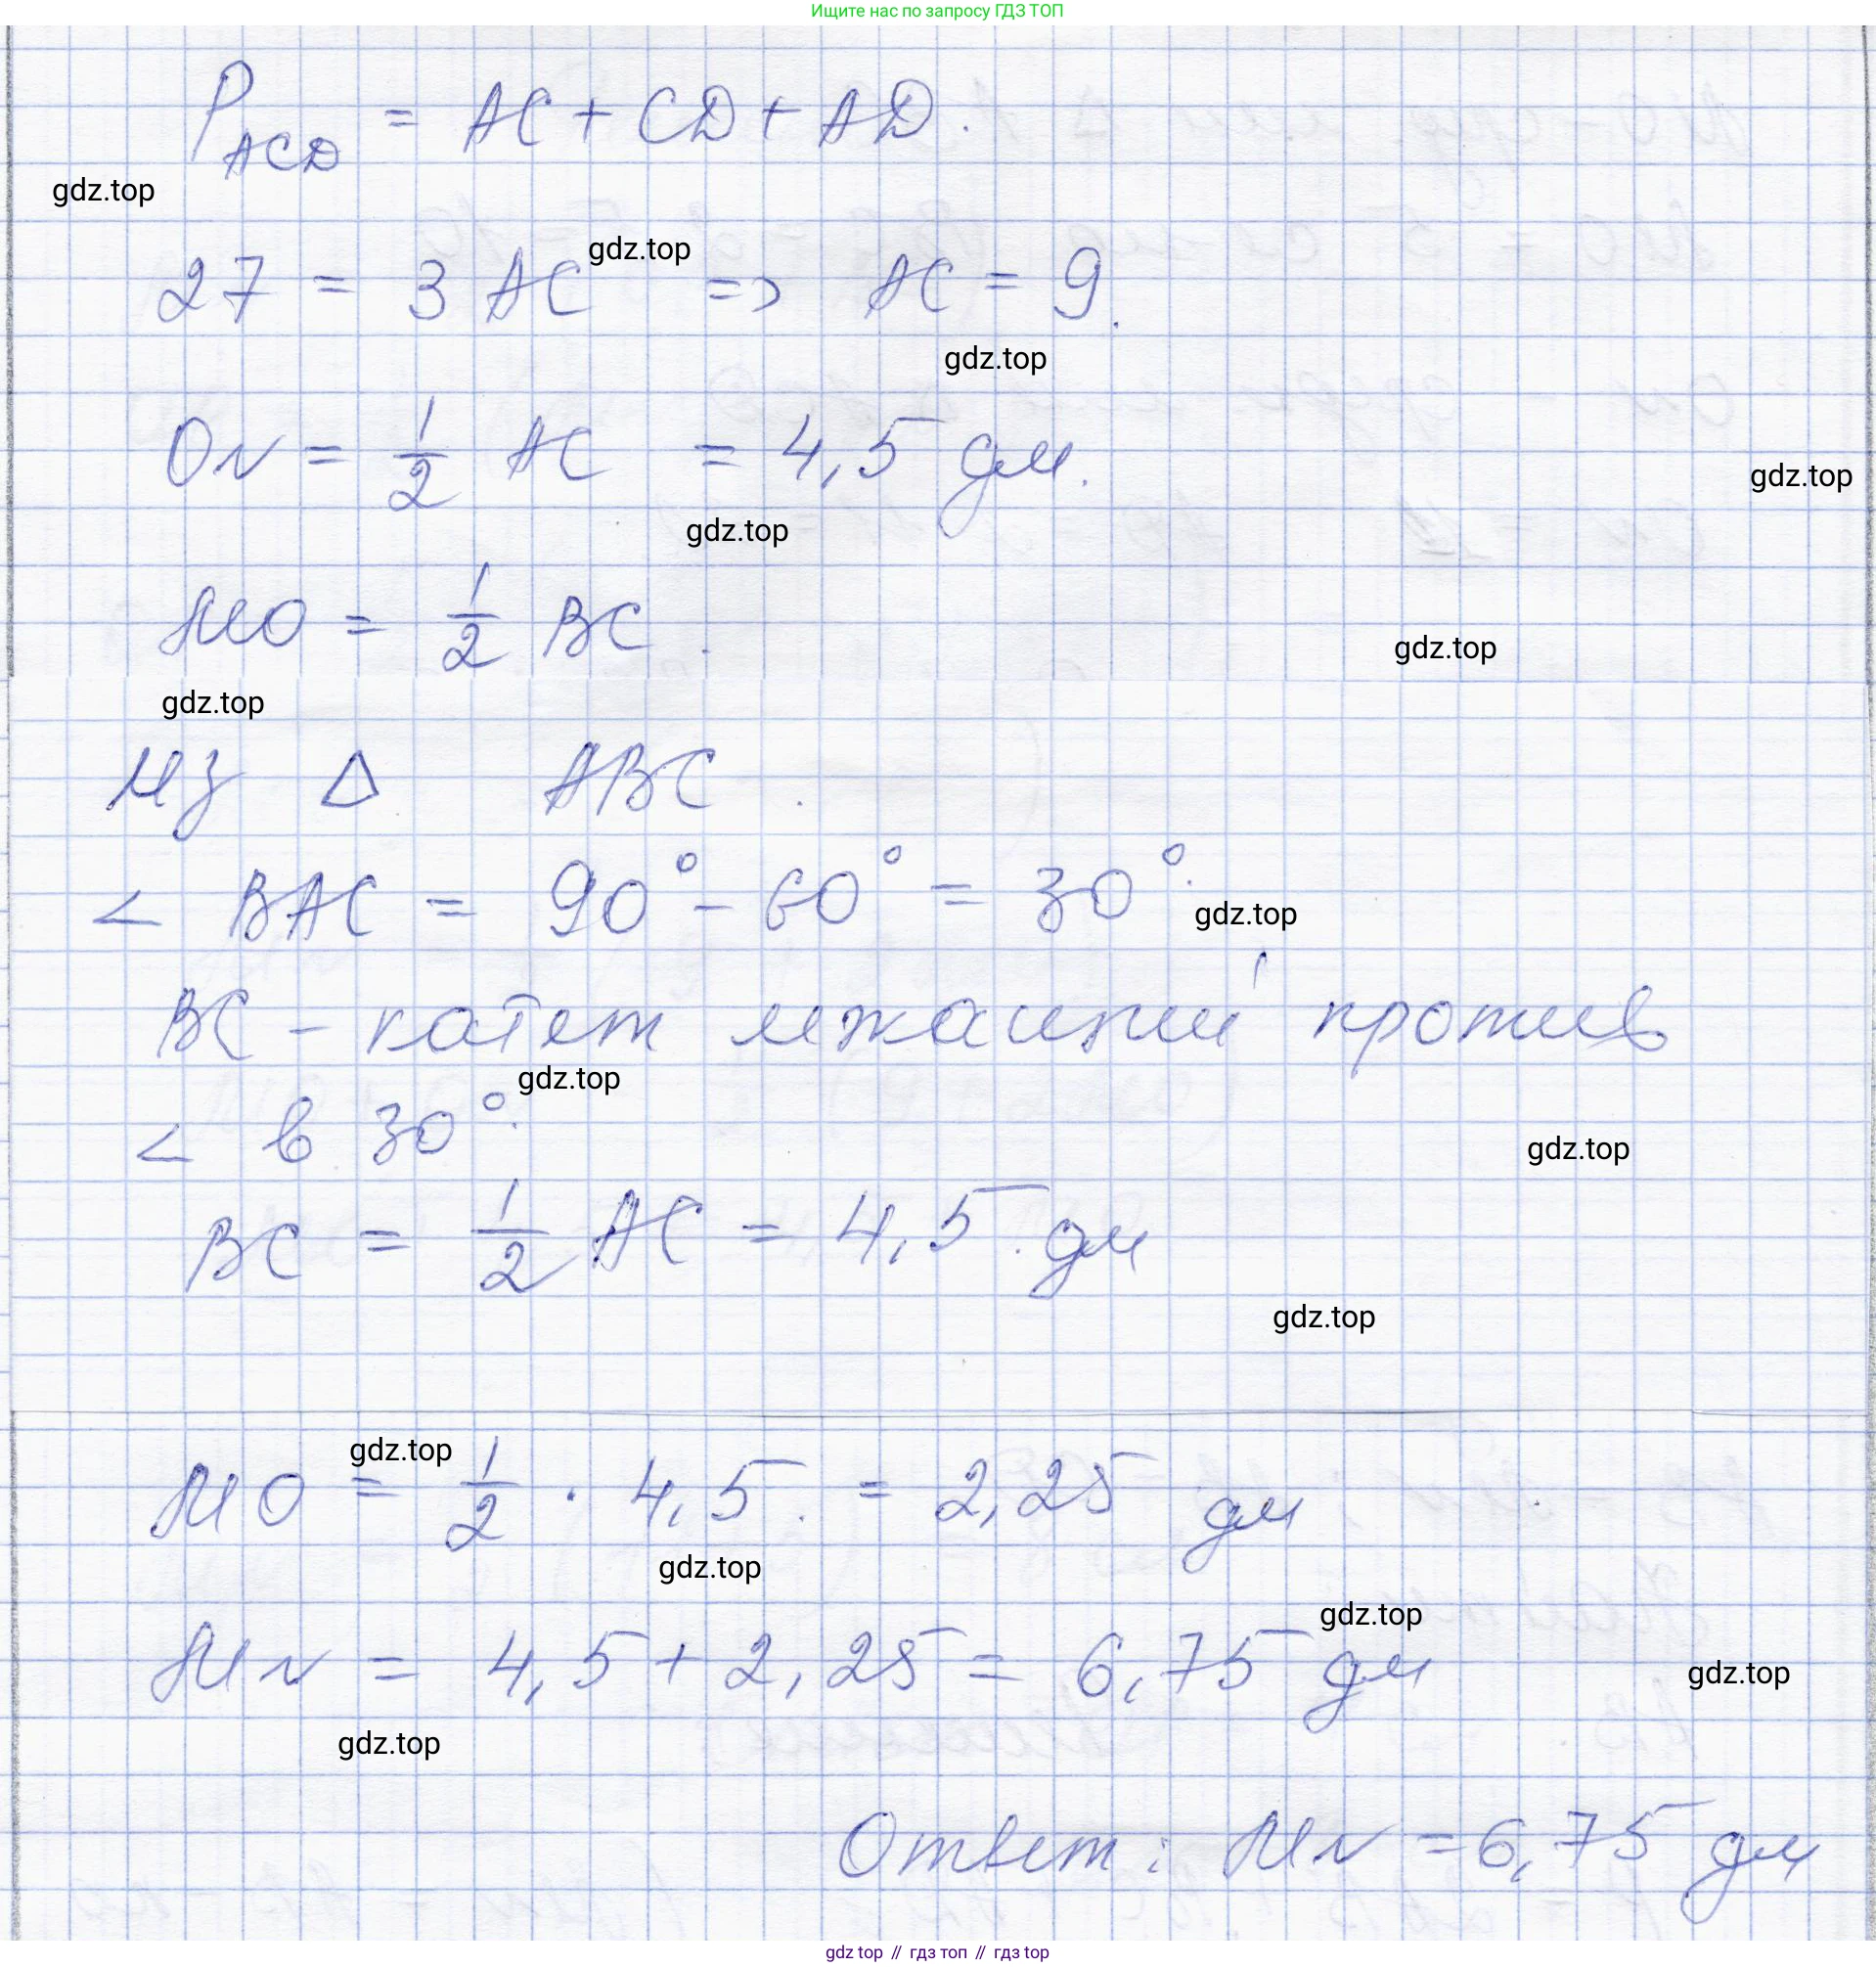 Ищите нас по запросу ГДЗ ТОП
P_ACD = AC + CD + AD.
gdz.top
gdz.top
27 = 3 AC => AC = 9.
gdz.top
ON = 1/2 AC = 4,5 дм.
gdz.top
gdz.top
MO = 1/2 BC.
gdz.top
gdz.top
Из △ ABC.
< BAC = 90° - 60° = 30°.
gdz.top
BC - катет лежащий против
gdz.top
< в 30°.
gdz.top
BC = 1/2 AC = 4,5 дм
gdz.top
gdz.top
MO = 1/2 · 4,5 = 2,25 дм
gdz.top
gdz.top
MN = 4,5 + 2,25 = 6,75 дм
gdz.top
gdz.top
Ответ: MN = 6,75 дм
gdz top // гдз топ // гдз top